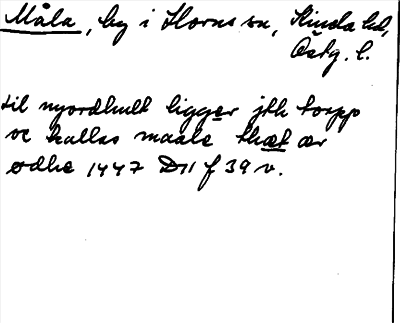 Måla, by i Horns sn, Kinda hd,
Östg. l.
til nyordhult ligger jth torpp
oc kallas maale thæt ær
ødhe 1447 D11 f 39 v.